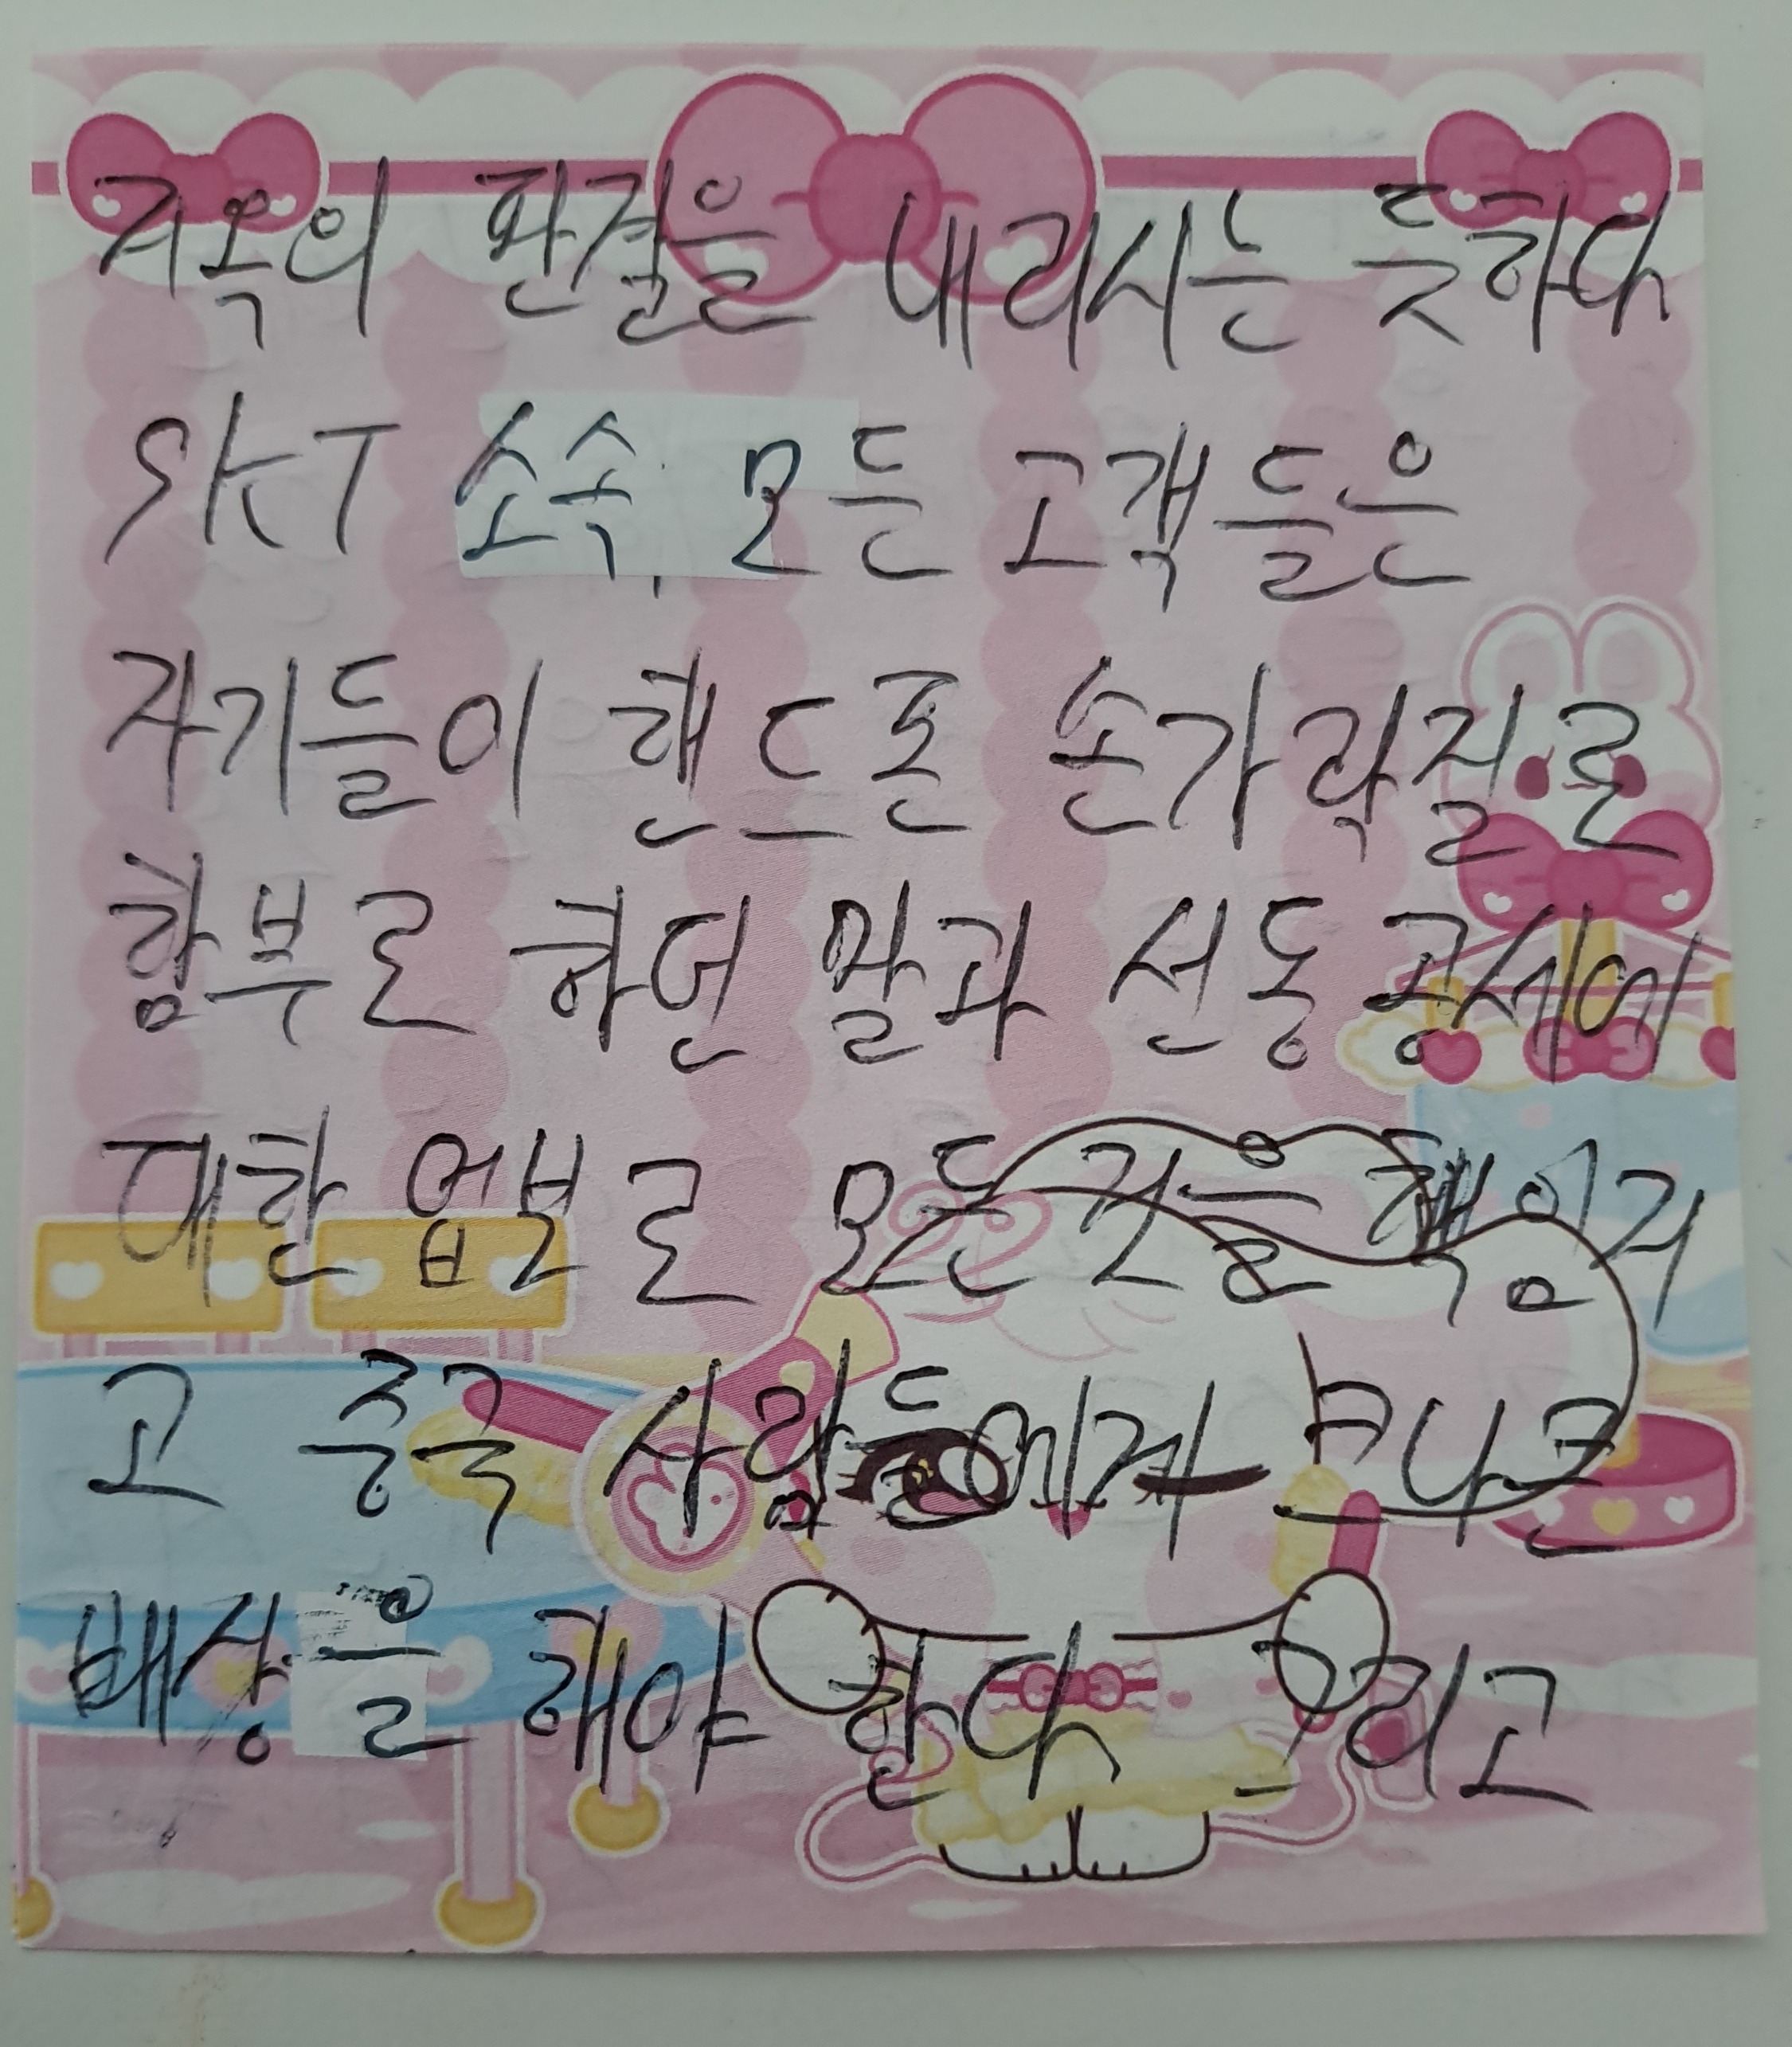 지옥의 판결을 내리시는 듯하다
SKT 소속, 모든 고객들은
자기들이 핸드폰 손가락질로
함부로 하던 말과 선동 공세에
대한 업보로 모든 것을 책임지
고 중국 사람들에게 크나큰
배상을 해야 한다 그리고